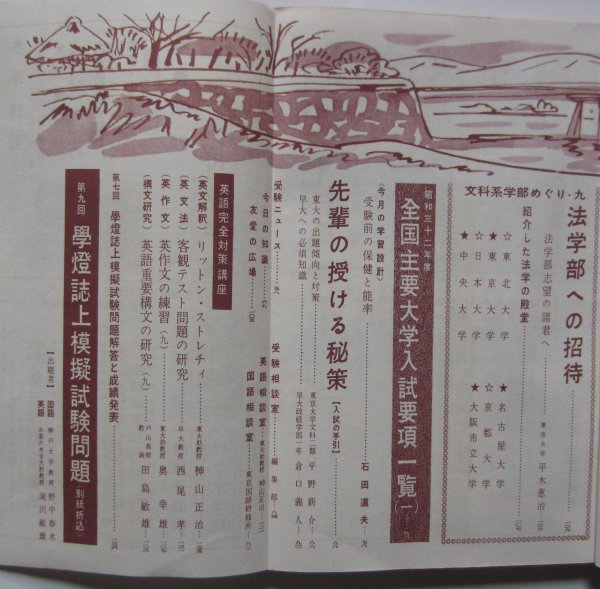 文科系学部めぐり・九
法学部への招待
法学部志望の諸君へ
東京大学 平木恵治
紹介した法学の殿堂
☆東北大学 ★名古屋大学
★東京大学 ☆京都大学
☆日本大学 ★大阪市立大学
★中央大学
昭和三十二年度
全国主要大学入試要項一覧(一)
〈今月の学習設計〉
受験前の保健と能率 石田道夫
先輩の授ける秘策【入試の手引】
東大の出題傾向と対策 東京大学文科二類 平野新介
早大への必須知識 早大政経学部一年 倉口義人
受験ニュース 受験相談室 編集部
今日の知識 英語相談室 東大助教授 神山正治
友愛の広場 国語相談室 東京国語研修所
英語完全対策講座
(英文解釈)リットン・ストレチィ 東大助教授 神山正治
(英文法)客観テスト問題の研究 早大教授 西尾孝
(英作文)英作文の練習(九) 東大助教授 奥幸雄
(構文研究)英語重要構文の研究(九) 戸山高校教諭 田島敏雄
第七回 學燈誌上模擬試験問題解答と成績発表
第九回 學燈誌上模擬試験問題(別紙折込)
【出題者】国語 神戸大学教授 野中春水
英語 お茶の水女子大助教授 滝沢敏雄